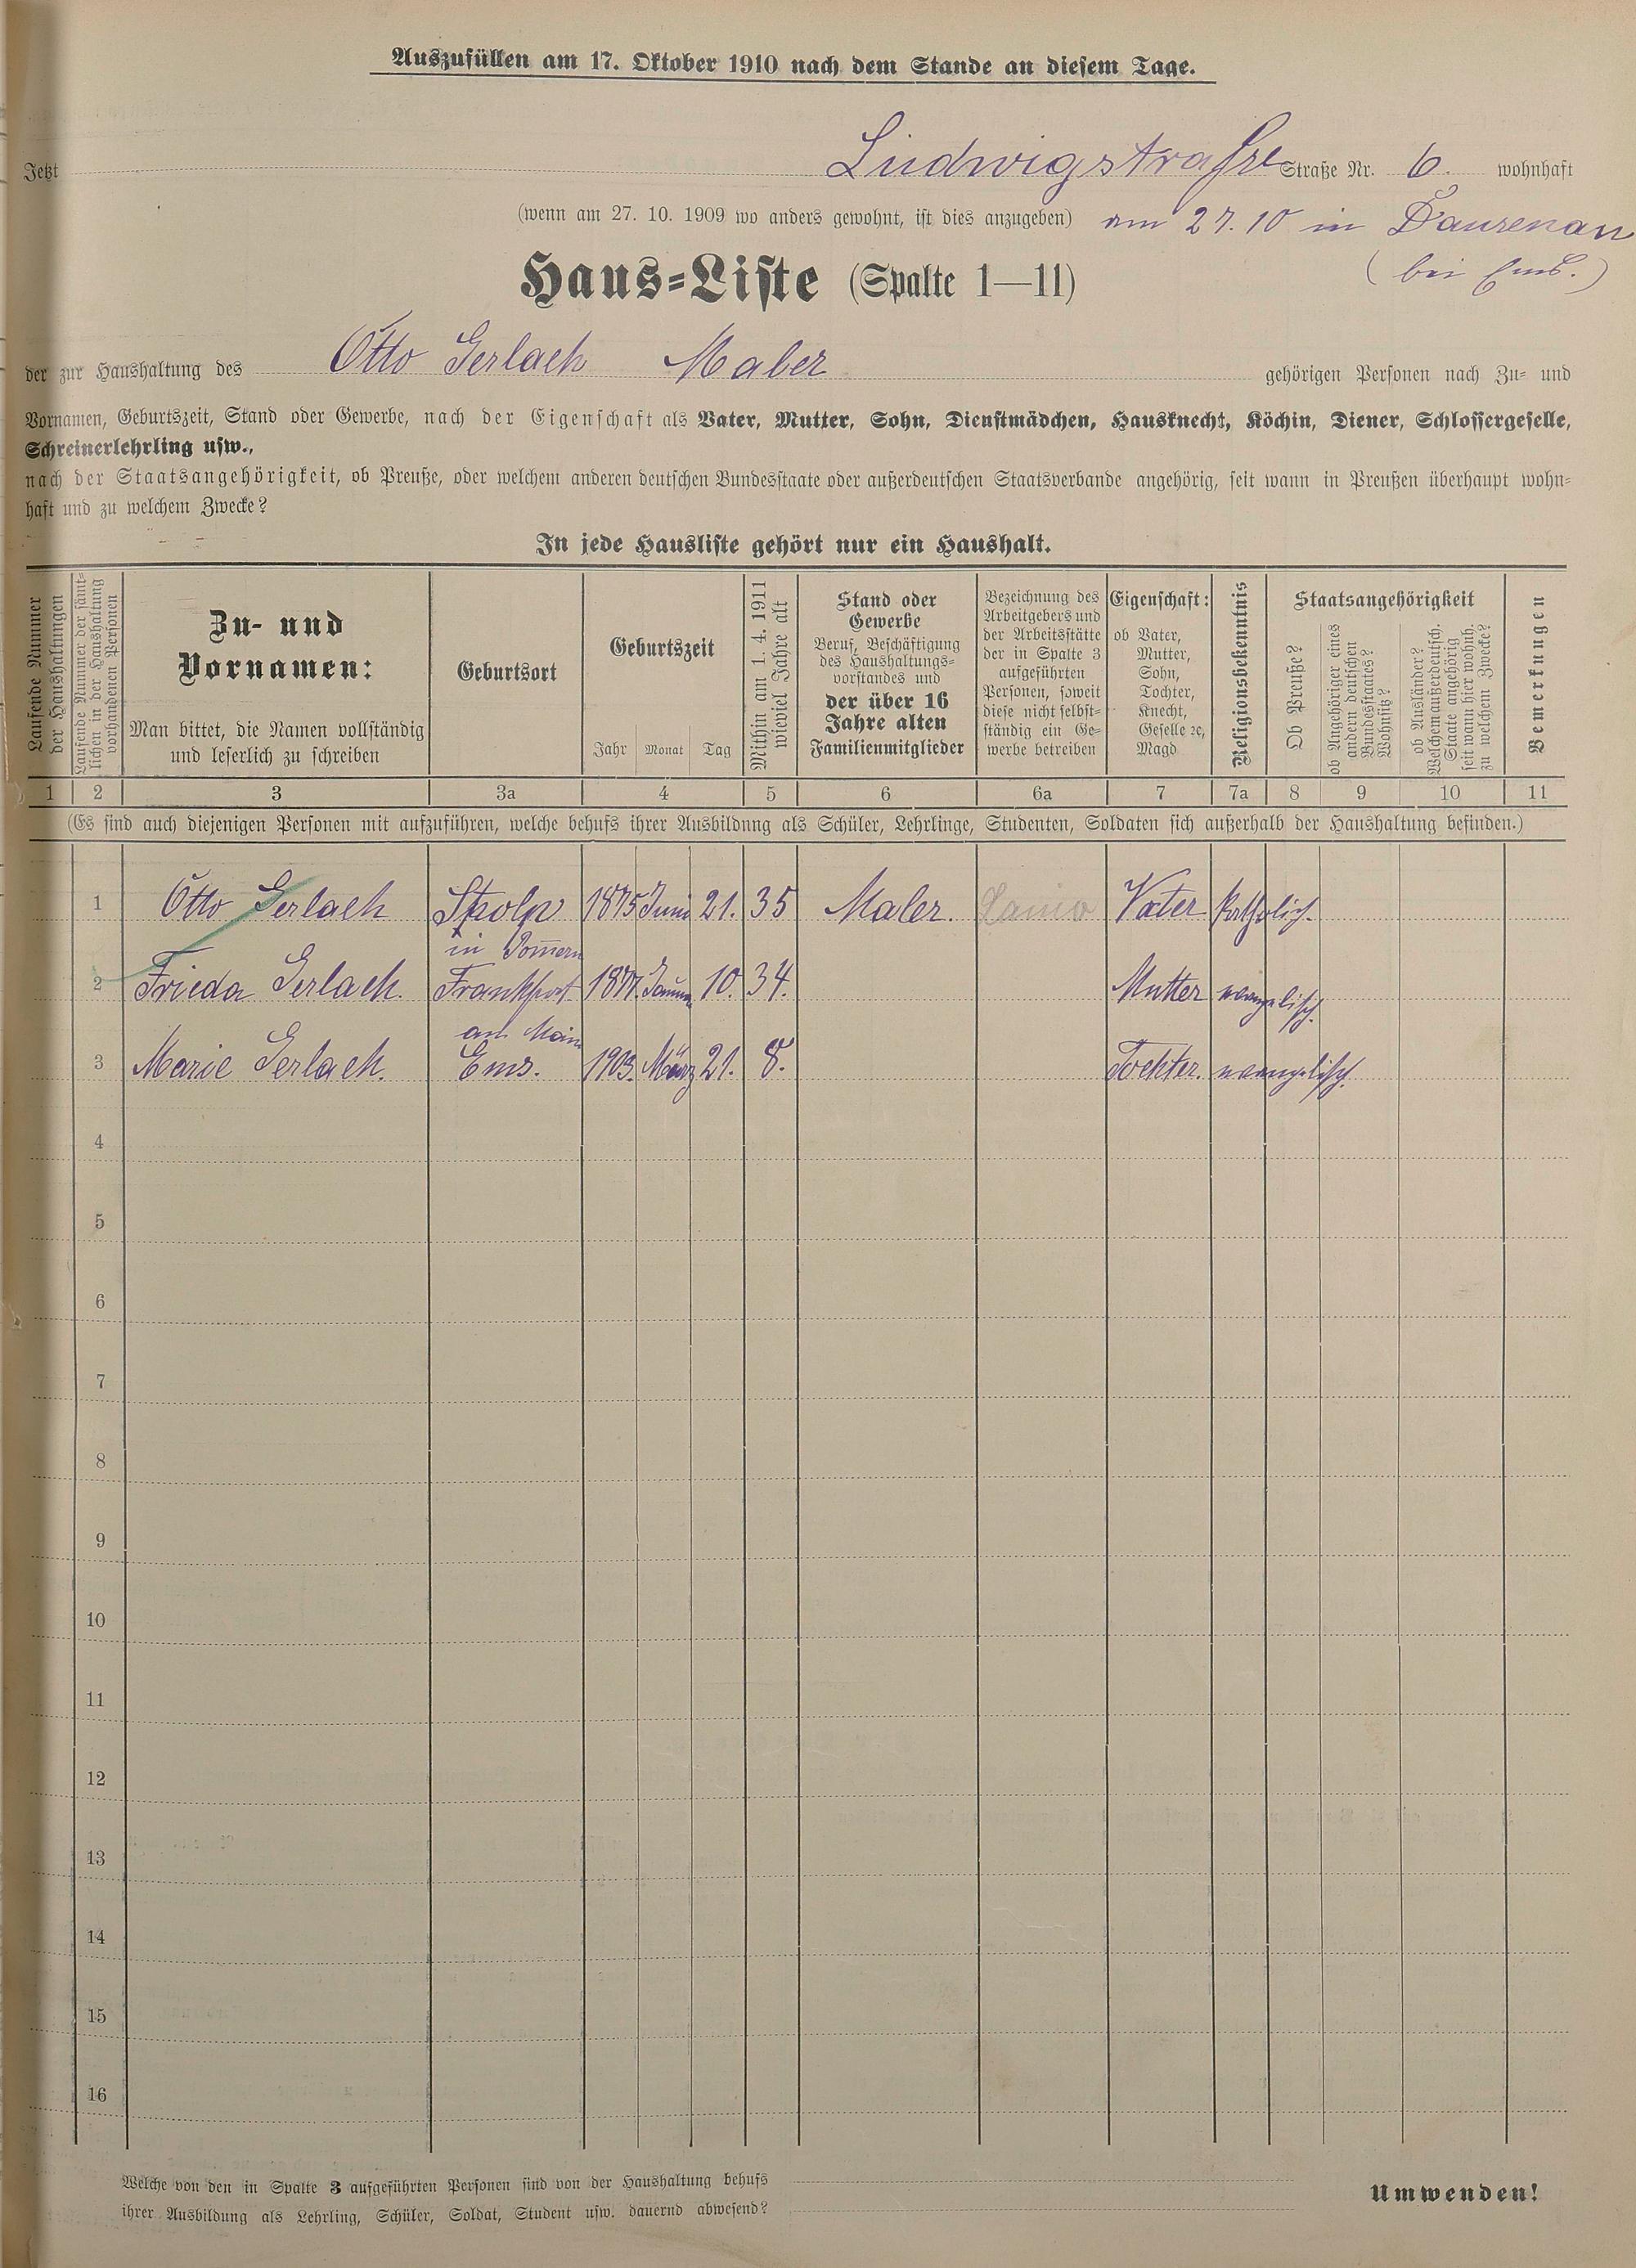 Auszufüllen am 17. Oktober 1910 nach dem Stande an diesem Tage.
Jetzt Ludwigstraße Straße Nr. 6. wohnhaft
(wenn am 27. 10. 1909 wo anders gewohnt, ist dies anzugeben) am 27. 10 in Dausenau
(bei Ems.)
Haus-Liste (Spalte 1—11)
der zur Haushaltung des Otto Gerlach Maler gehörigen Personen nach Zu- und
Vornamen, Geburtszeit, Stand oder Gewerbe, nach der Eigenschaft als Vater, Mutter, Sohn, Dienstmädchen, Hausknecht, Köchin, Diener, Schlossergeselle,
Schreinerlehrling usw.,
nach der Staatsangehörigkeit, ob Preuße, oder welchem anderen deutschen Bundesstaate oder außerdeutschen Staatsverbande angehörig, seit wann in Preußen überhaupt wohn-
haft und zu welchem Zwecke?
In jede Hausliste gehört nur ein Haushalt.
Laufende Nummer
der Haushaltungen
Laufende Nummer der sämt-
lichen in der Haushaltung
vorhandenen Personen
Zu- und
Vornamen:
Man bittet, die Namen vollständig
und leserlich zu schreiben
Geburtsort
Geburtszeit
Jahr Monat Tag
Mithin am 1. 4. 1911
wieviel Jahre alt
Stand oder
Gewerbe
Beruf, Beschäftigung
des Haushaltungs-
vorstandes und
der über 16
Jahre alten
Familienmitglieder
Bezeichnung des
Arbeitgebers und
der Arbeitsstätte
der in Spalte 3
aufgeführten
Personen, soweit
diese nicht selbst-
ständig ein Ge-
werbe betreiben
Eigenschaft:
ob Vater,
Mutter,
Sohn,
Tochter,
Knecht,
Geselle ꝛc,
Magd
Religionsbekenntnis
Staatsangehörigkeit
Ob Preuße?
ob Angehöriger eines
andern deutschen
Bundesstaates?
Wohnsitz?
ob Ausländer?
Welchem außerdeutsch.
Staate angehörig
seit wann hier wohnh.
zu welchem Zwecke?
Bemerkungen
1 2 3 3a 4 5 6 6a 7 7a 8 9 10 11
(Es sind auch diejenigen Personen mit aufzuführen, welche behufs ihrer Ausbildung als Schüler, Lehrlinge, Studenten, Soldaten sich außerhalb der Haushaltung befinden.)
1 Otto Gerlach Stolp 1875 Juni 21. 35 Maler. Vater katholisch.
in Pom̅ern
2 Frieda Gerlach. Frankfurt 1877. Januar 10. 34. Mutter evangelisch.
am Main
3 Marie Gerlach. Ems. 1903. März 21. 8. Tochter. evangelisch.
4
5
6
7
8
9
10
11
12
13
14
15
16
Welche von den in Spalte 3 aufgeführten Personen sind von der Haushaltung behufs
ihrer Ausbildung als Lehrling, Schüler, Soldat, Student usw. dauernd abwesend?
Umwenden!